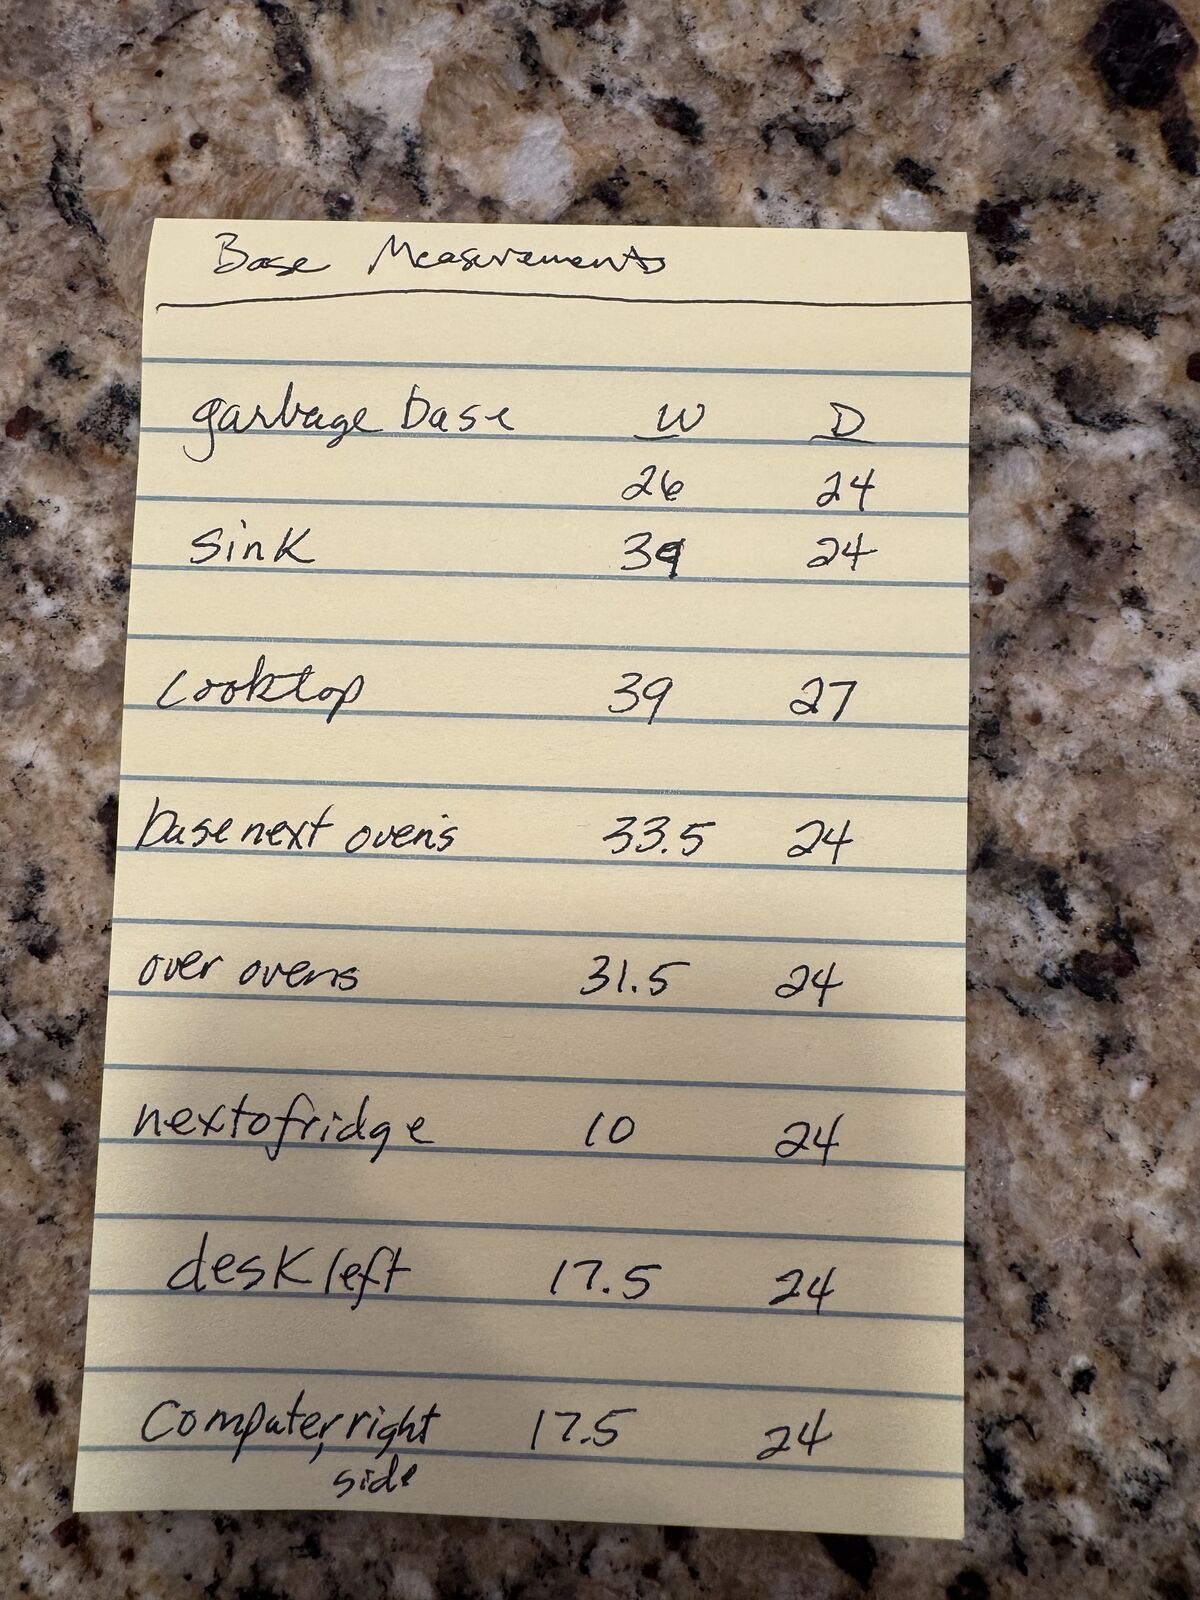 Base Measurements
garbage base W D
26 24
sink 39 24
cooktop 39 27
base next ovens 33.5 24
over ovens 31.5 24
next to fridge 10 24
desk left 17.5 24
Computer, right 17.5 24
side